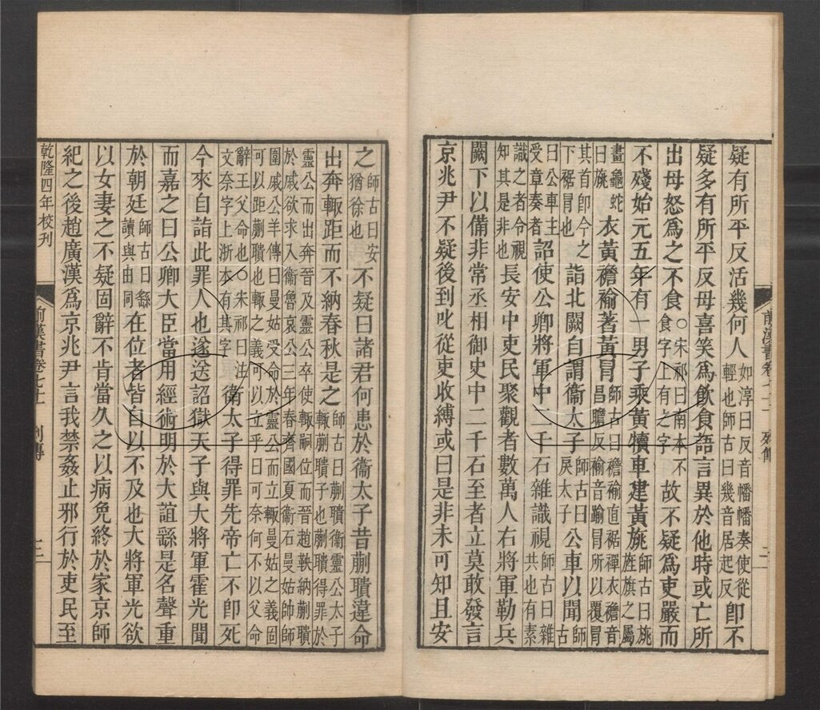 疑有所平反活幾何人如淳曰反音幡幡奏使從輕也師古曰幾音居起反卽不
疑多有所平反母喜笑爲飮食語言異於他時或亡所
出母怒爲之不食○宋祁曰南本不食字上有之字故不疑爲吏嚴而
不殘始元五年有一男子乘黃犢車建黃旐師古曰旐旌旗之屬
畫龜蛇曰旐衣黃襜褕著黃冒師古曰襜褕直裾襌衣襜音昌瞻反褕音踰冒所以覆冒
其首卽今之下帬冒也詣北闕自謂衞太子師古曰戾太子公車以聞師古
曰公車主受章奏者詔使公卿將軍中二千石雜識視師古曰雜共也有素
識之者令視知其是非也長安中吏民聚觀者數萬人右將軍勒兵
闕下以備非常丞相御史中二千石至者立莫敢發言
京兆尹不疑後到叱從吏收縛或曰是非未可知且安
前漢書卷七十一 列傳 二
之師古曰安猶徐也不疑曰諸君何患於衞太子昔蒯聵違命
出奔輒距而不納春秋是之師古曰蒯聵衞靈公太子輒蒯聵子也蒯聵得罪於
靈公而出奔晉及靈公卒使輒嗣位而晉趙鞅納蒯聵於戚欲求入衞魯哀公三年春齊國夏衞石曼姑帥師
圍戚公羊傳曰曼姑受命於靈公而立輒曼姑之義固可以距蒯聵也輒之義可以立乎曰可奈何不以父命
辭王父命也○宋祁曰注文奈字上浙本有其字衞太子得罪先帝亡不卽死
今來自詣此罪人也遂送詔獄天子與大將軍霍光聞
而嘉之曰公卿大臣當用經術明於大誼繇是名聲重
於朝廷師古曰繇讀與由同在位者皆自以不及也大將軍光欲
以女妻之不疑固辭不肯當久之以病免終於家京師
紀之後趙廣漢爲京兆尹言我禁姦止邪行於吏民至
乾隆四年校刊 前漢書卷七十一 列傳 三